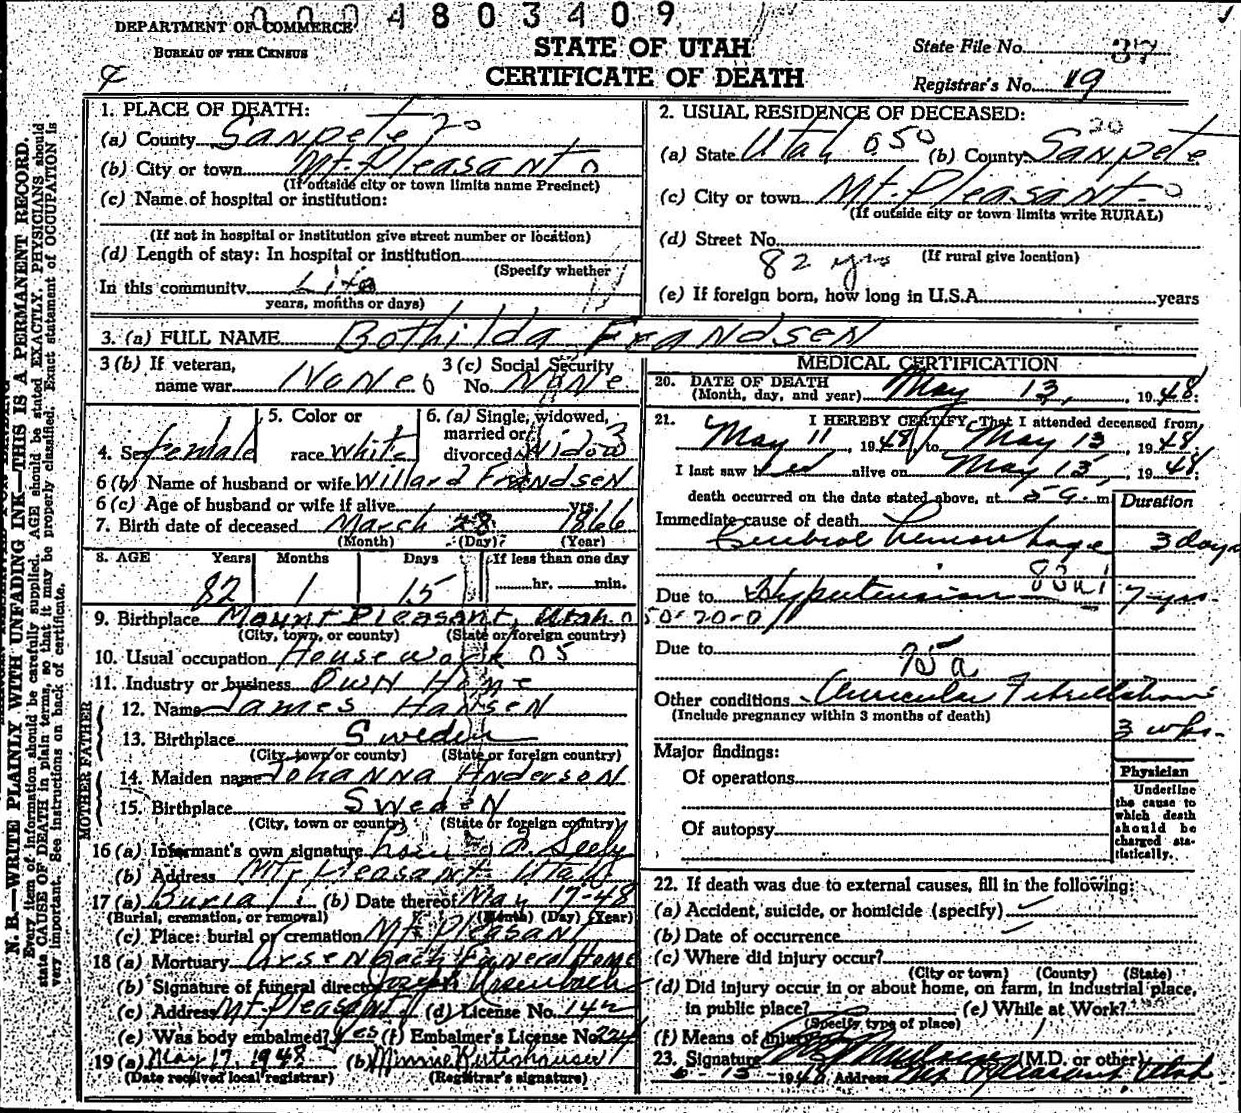 0004803409
DEPARTMENT OF COMMERCE
BUREAU OF THE CENSUS
STATE OF UTAH
CERTIFICATE OF DEATH
State File No. 37
Registrar's No. 19
N. B.—WRITE PLAINLY WITH UNFADING INK—THIS IS A PERMANENT RECORD.
Every item of information should be carefully supplied. AGE should be stated EXACTLY. PHYSICIANS should
state CAUSE OF DEATH in plain terms, so that it may be properly classified. Exact statement of OCCUPATION is
very important. See instructions on back of certificate.
1. PLACE OF DEATH:
(a) County Sanpete 20
(b) City or town Mt. Pleasant 0
(If outside city or town limits name Precinct)
(c) Name of hospital or institution:
(If not in hospital or institution give street number or location)
(d) Length of stay: In hospital or institution
(Specify whether
In this community Life
years, months or days)
2. USUAL RESIDENCE OF DECEASED:
(a) State Utah 050 (b) County Sanpete 20
(c) City or town Mt. Pleasant 0
(If outside city or town limits write RURAL)
(d) Street No.
82 yrs (If rural give location)
(e) If foreign born, how long in U.S.A. years
3. (a) FULL NAME Bothilda Frandsen
3 (b) If veteran, name war None 0
3 (c) Social Security No. None
4. Sex female
5. Color or race white
6. (a) Single, widowed, married or divorced Widow 3
6 (b) Name of husband or wife Willard Frandsen
6 (c) Age of husband or wife if alive yrs.
7. Birth date of deceased March 28 1866
(Month) (Day) (Year)
8. AGE Years Months Days If less than one day
82 1 15 hr. min.
9. Birthplace Mount Pleasant, Utah 0 50-20-0
(City, town, or county) (State or foreign country)
10. Usual occupation House work 05
11. Industry or business Own Home
FATHER
12. Name James Hansen
13. Birthplace Sweden
(City, town or county) (State or foreign country)
MOTHER
14. Maiden name Johanna Anderson
15. Birthplace Sweden
(City, town or county) (State or foreign country)
16 (a) Informant's own signature Seely
(b) Address Mt. Pleasant Utah
17 (a) Burial (b) Date thereof May 17-48
(Burial, cremation, or removal) (Month) (Day) (Year)
(c) Place: burial or cremation Mt. Pleasant
18 (a) Mortuary Ursenbach Funeral Home
(b) Signature of funeral director Joseph Ursenbach
(c) Address Mt. Pleasant (d) License No. 142
(e) Was body embalmed? Yes (f) Embalmer's License No. 224
19 (a) May 17, 1948 (b) Minnie Rutishauser
(Date received local registrar) (Registrar's signature)
MEDICAL CERTIFICATION
20. DATE OF DEATH May 13, 1948
(Month, day, and year)
21. I HEREBY CERTIFY, That I attended deceased from
May 11, 1948, to May 13, 1948
I last saw her alive on May 13, 1948
death occurred on the date stated above, at m
Duration
Immediate cause of death
Cerebral hemorrhage 3 days
Due to Hypertension 7 yrs.
Due to
Other conditions Auricular Fibrillation 3 wks.
(Include pregnancy within 3 months of death)
Major findings:
Of operations
Of autopsy
Physician
Underline
the cause to
which death
should be
charged sta-
tistically.
22. If death was due to external causes, fill in the following:
(a) Accident, suicide, or homicide (specify)
(b) Date of occurrence
(c) Where did injury occur?
(City or town) (County) (State)
(d) Did injury occur in or about home, on farm, in industrial place,
in public place? (e) While at Work?
(Specify type of place)
(f) Means of Injury
23. Signature (M.D. or other)
1948 Address Mt. Pleasant Utah